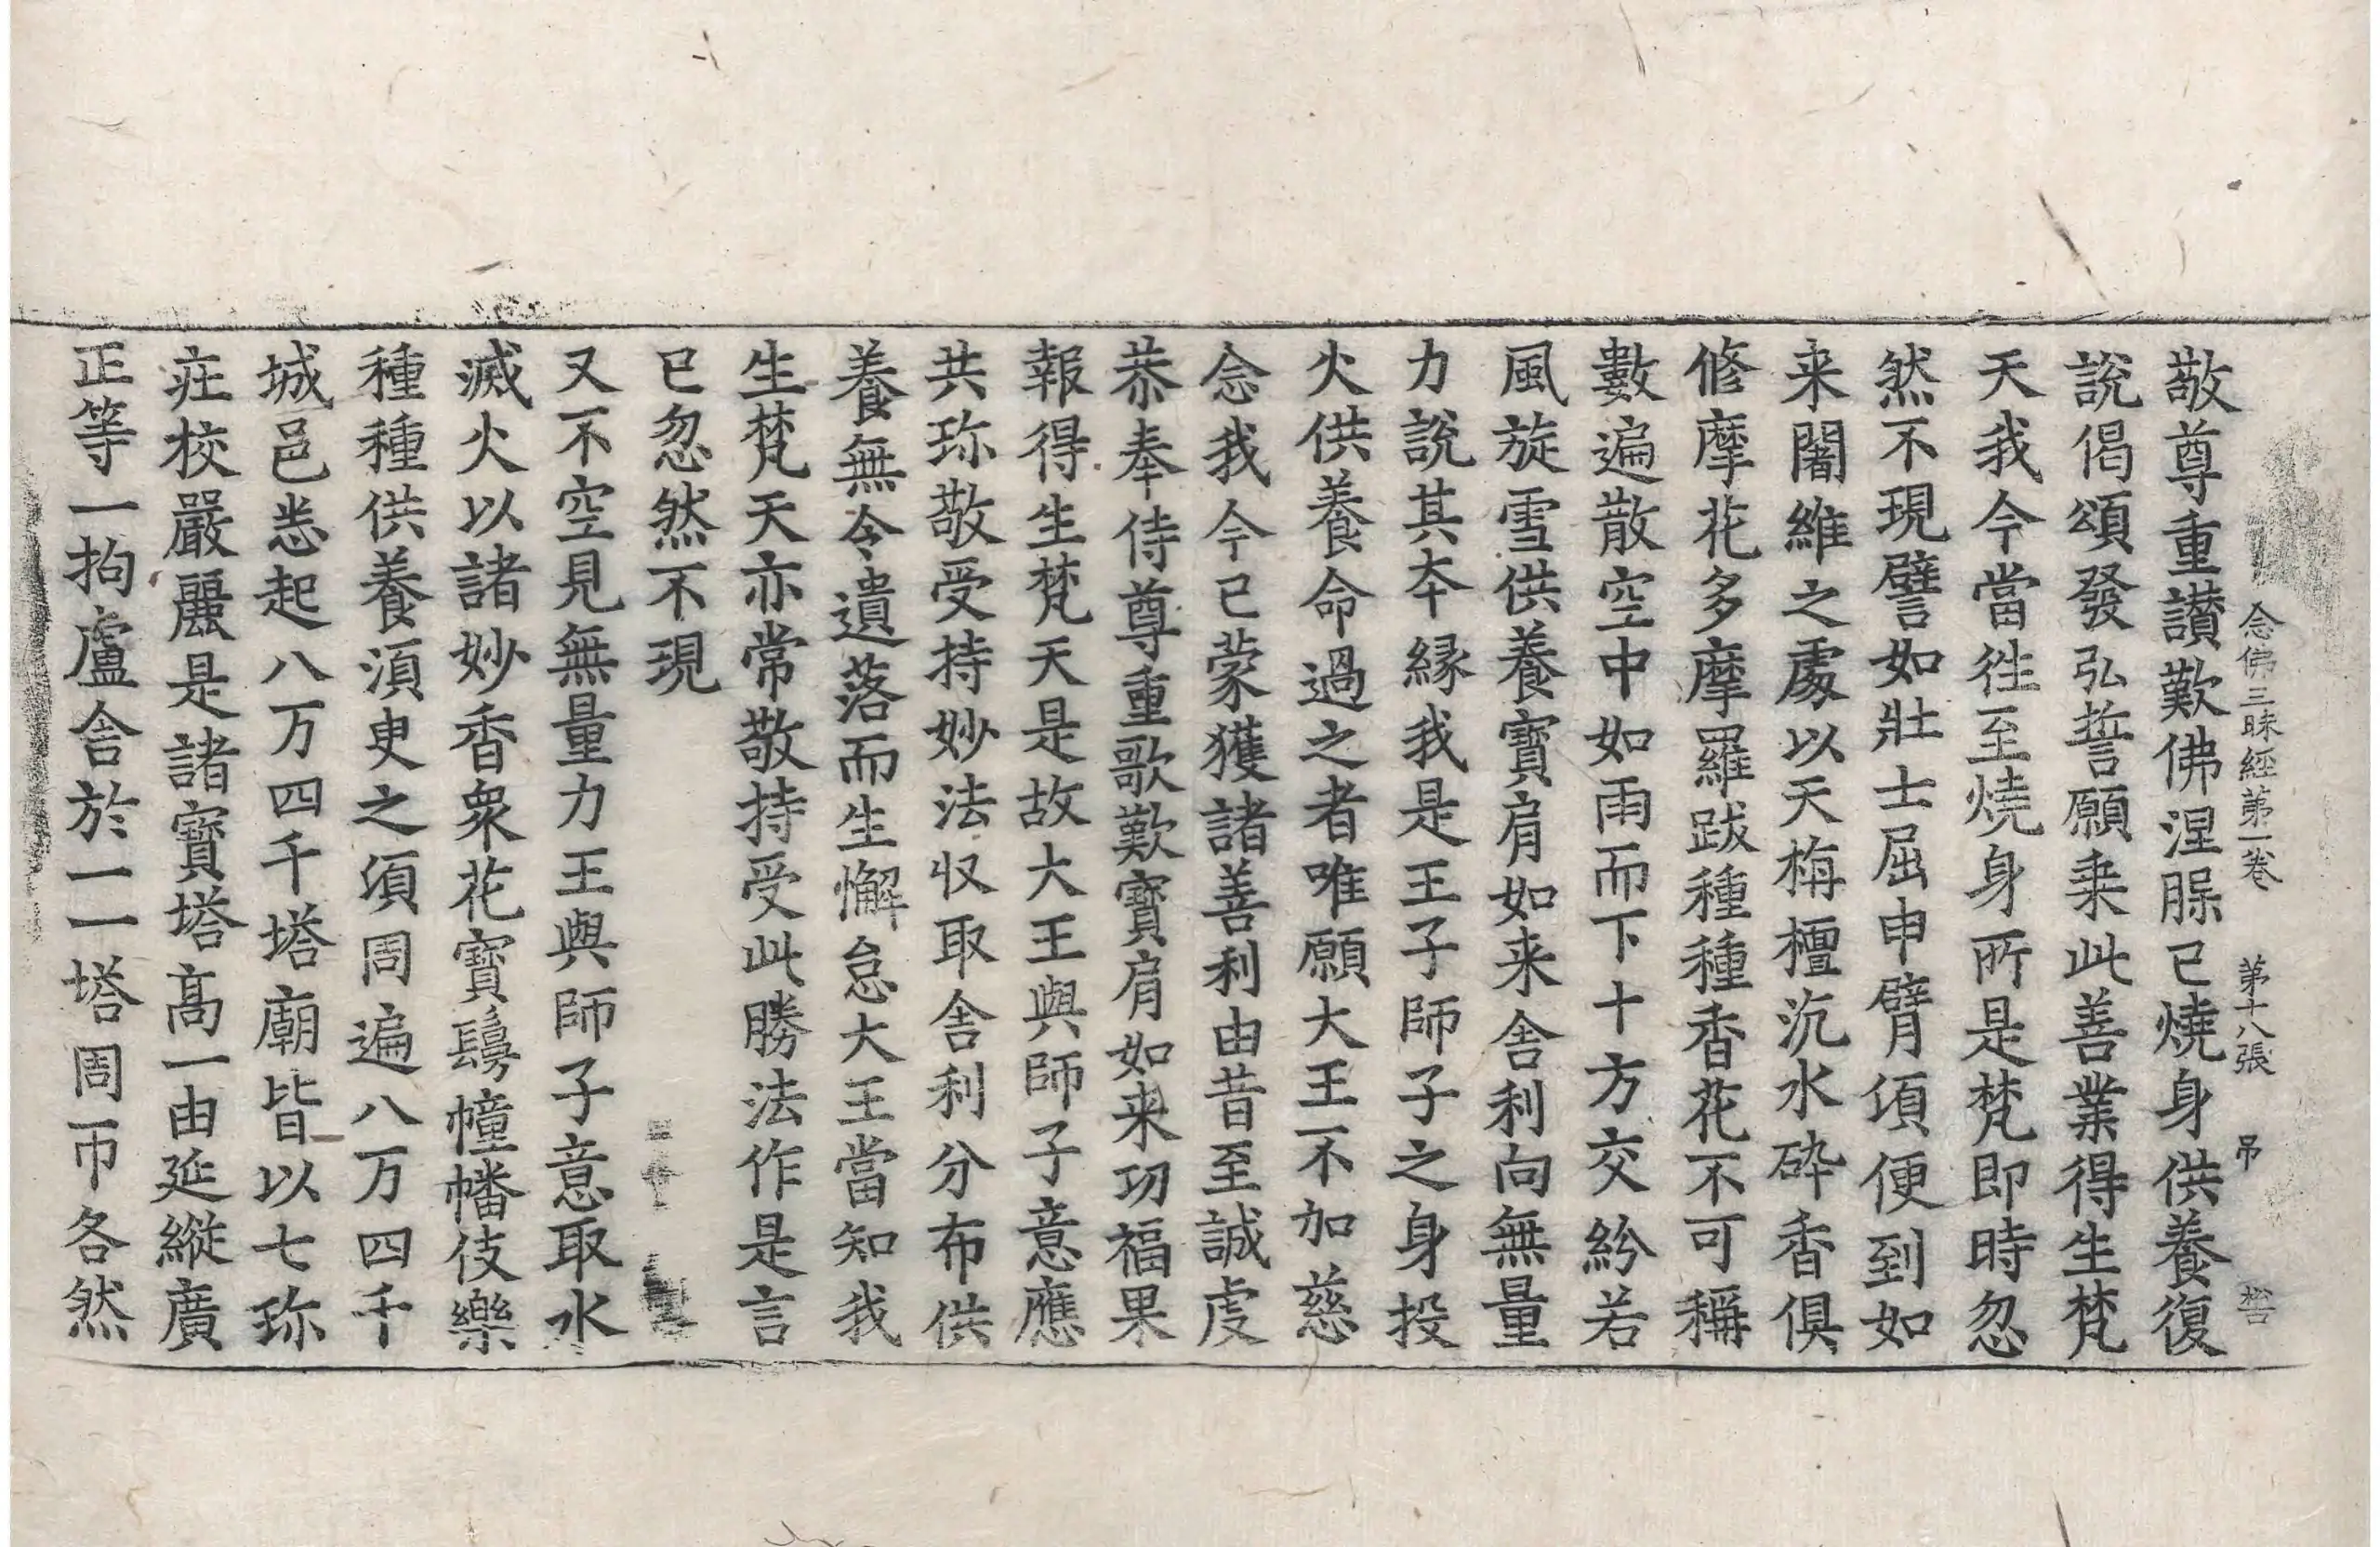 念佛三昧經第一卷 第十八張 吊
敬尊重讃歎佛涅脵已燒身供養復
說偈頌發弘誓願乗此善業得生梵
天我今當徃至燒身所是梵即時忽
然不現譬如壯士屈申臂湏便到如
来闍維之處以天栴檀沉水碎香俱
修摩花多摩羅跋種種香花不可稱
數遍散空中如雨而下十方交紛若
風旋雪供養寶肩如来舎利向無量
力說其夲縁我是王子師子之身投
火供養命過之者唯願大王不加慈
念我今已蒙獲諸善利由昔至誠虔
恭奉侍尊重歌歎寶肩如来功福果
報得生梵天是故大王與師子意應
共珎敬受持妙法収取舎利分布供
養無令遺落而生懈怠大王當知我
生梵天亦常敬持受此勝法作是言
已忽然不現
又不空見無量力王與師子意取水
滅火以諸妙香衆花寶鬘幢幡伎樂
種種供養湏臾之須周遍八万四千
城邑悉起八万四千塔廟皆以七珎
莊校嚴麗是諸寶塔髙一由延縱廣
正等一拘盧舎於一一塔周帀各然